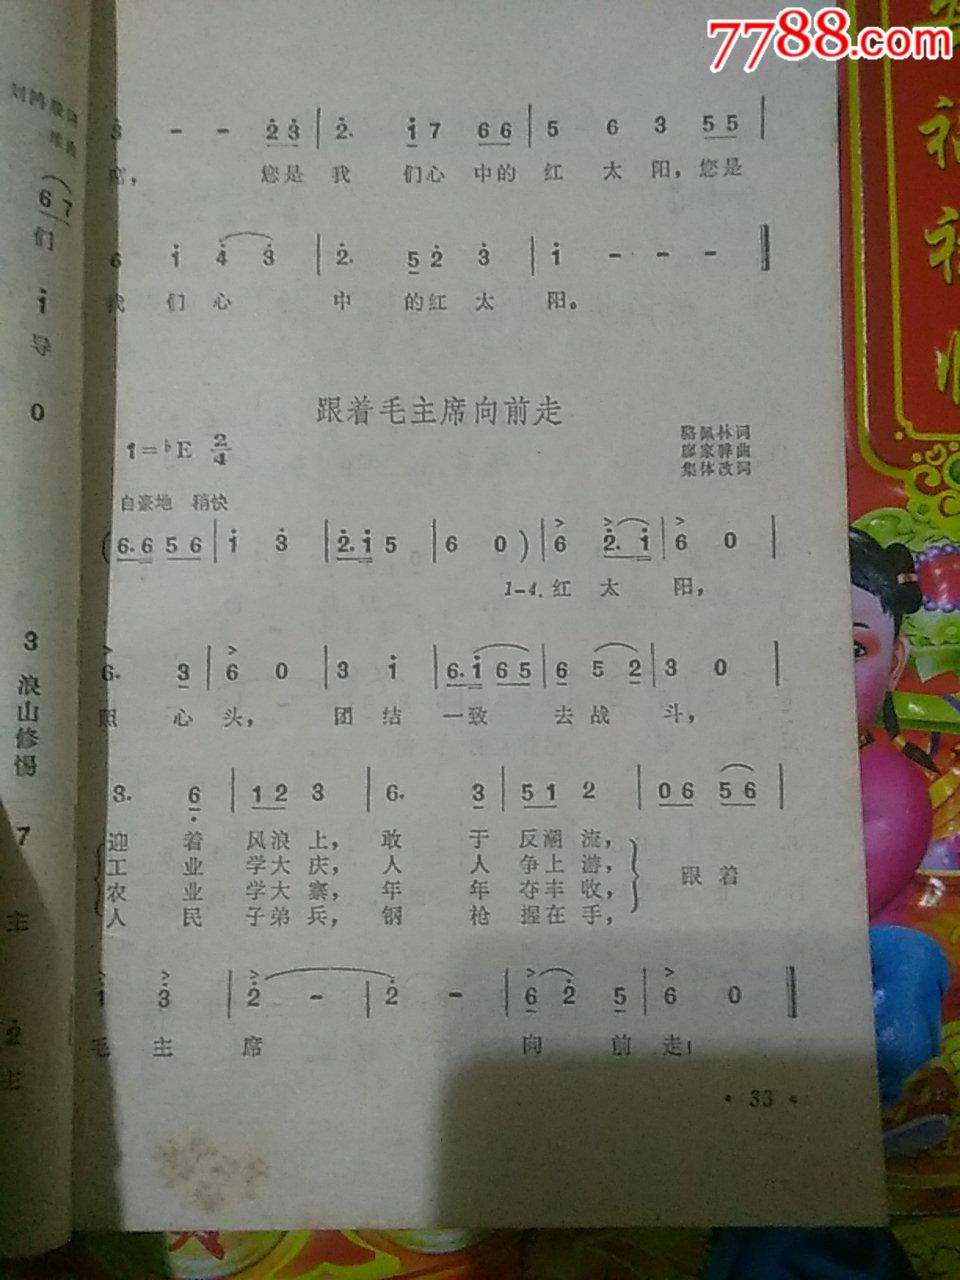 7788.com
3 - - 2 3 | 2. 1 7 6 6 | 5 6 3 5 5 |
席， 您是 我 们心 中的 红 太 阳，您是
6 1 4 3 | 2. 5 2 3 | 1 - - -
我 们 心 中 的红 太 阳。
跟着毛主席向前走
1=♭E 2/4
骆佩林词
廖家骅曲
集体改词
自豪地 稍快
(6. 6 5 6 | 1 3 | 2. 1 5 | 6 0) | 6 2. 1 | 6 0 |
1-4. 红 太 阳，
6. 3 | 6 0 | 3 1 | 6. 1 6 5 | 6 5 2 | 3 0 |
照 心 头， 团 结 一致 去 战 斗，
3. 6 | 1 2 3 | 6. 3 | 5 1 2 | 0 6 5 6 |
迎 着 风浪 上， 敢 于 反潮 流，
工 业 学大 庆， 人 人 争上 游，
农 业 学大 寨， 年 年 夺丰 收，
人 民 子弟 兵， 钢 枪 握在 手，
跟 着
1 3 | 2 - | 2 - | 6 2 5 | 6 0
毛 主 席 向 前 走！
• 33 •
6 7
们
1
导
0
3
浪
山
修
7
主
2
主
福